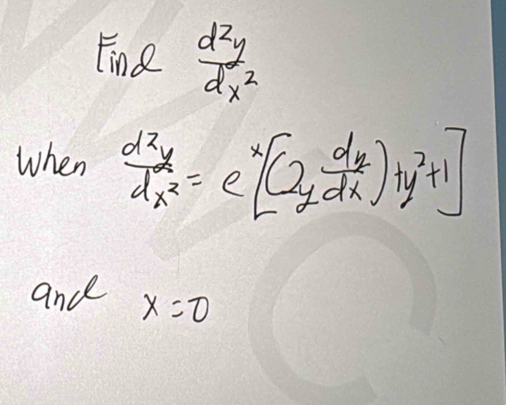 Find d²y/dx²
when d²y/dx² = eˣ[(2y dy/dx)+y²+1]
and x=0